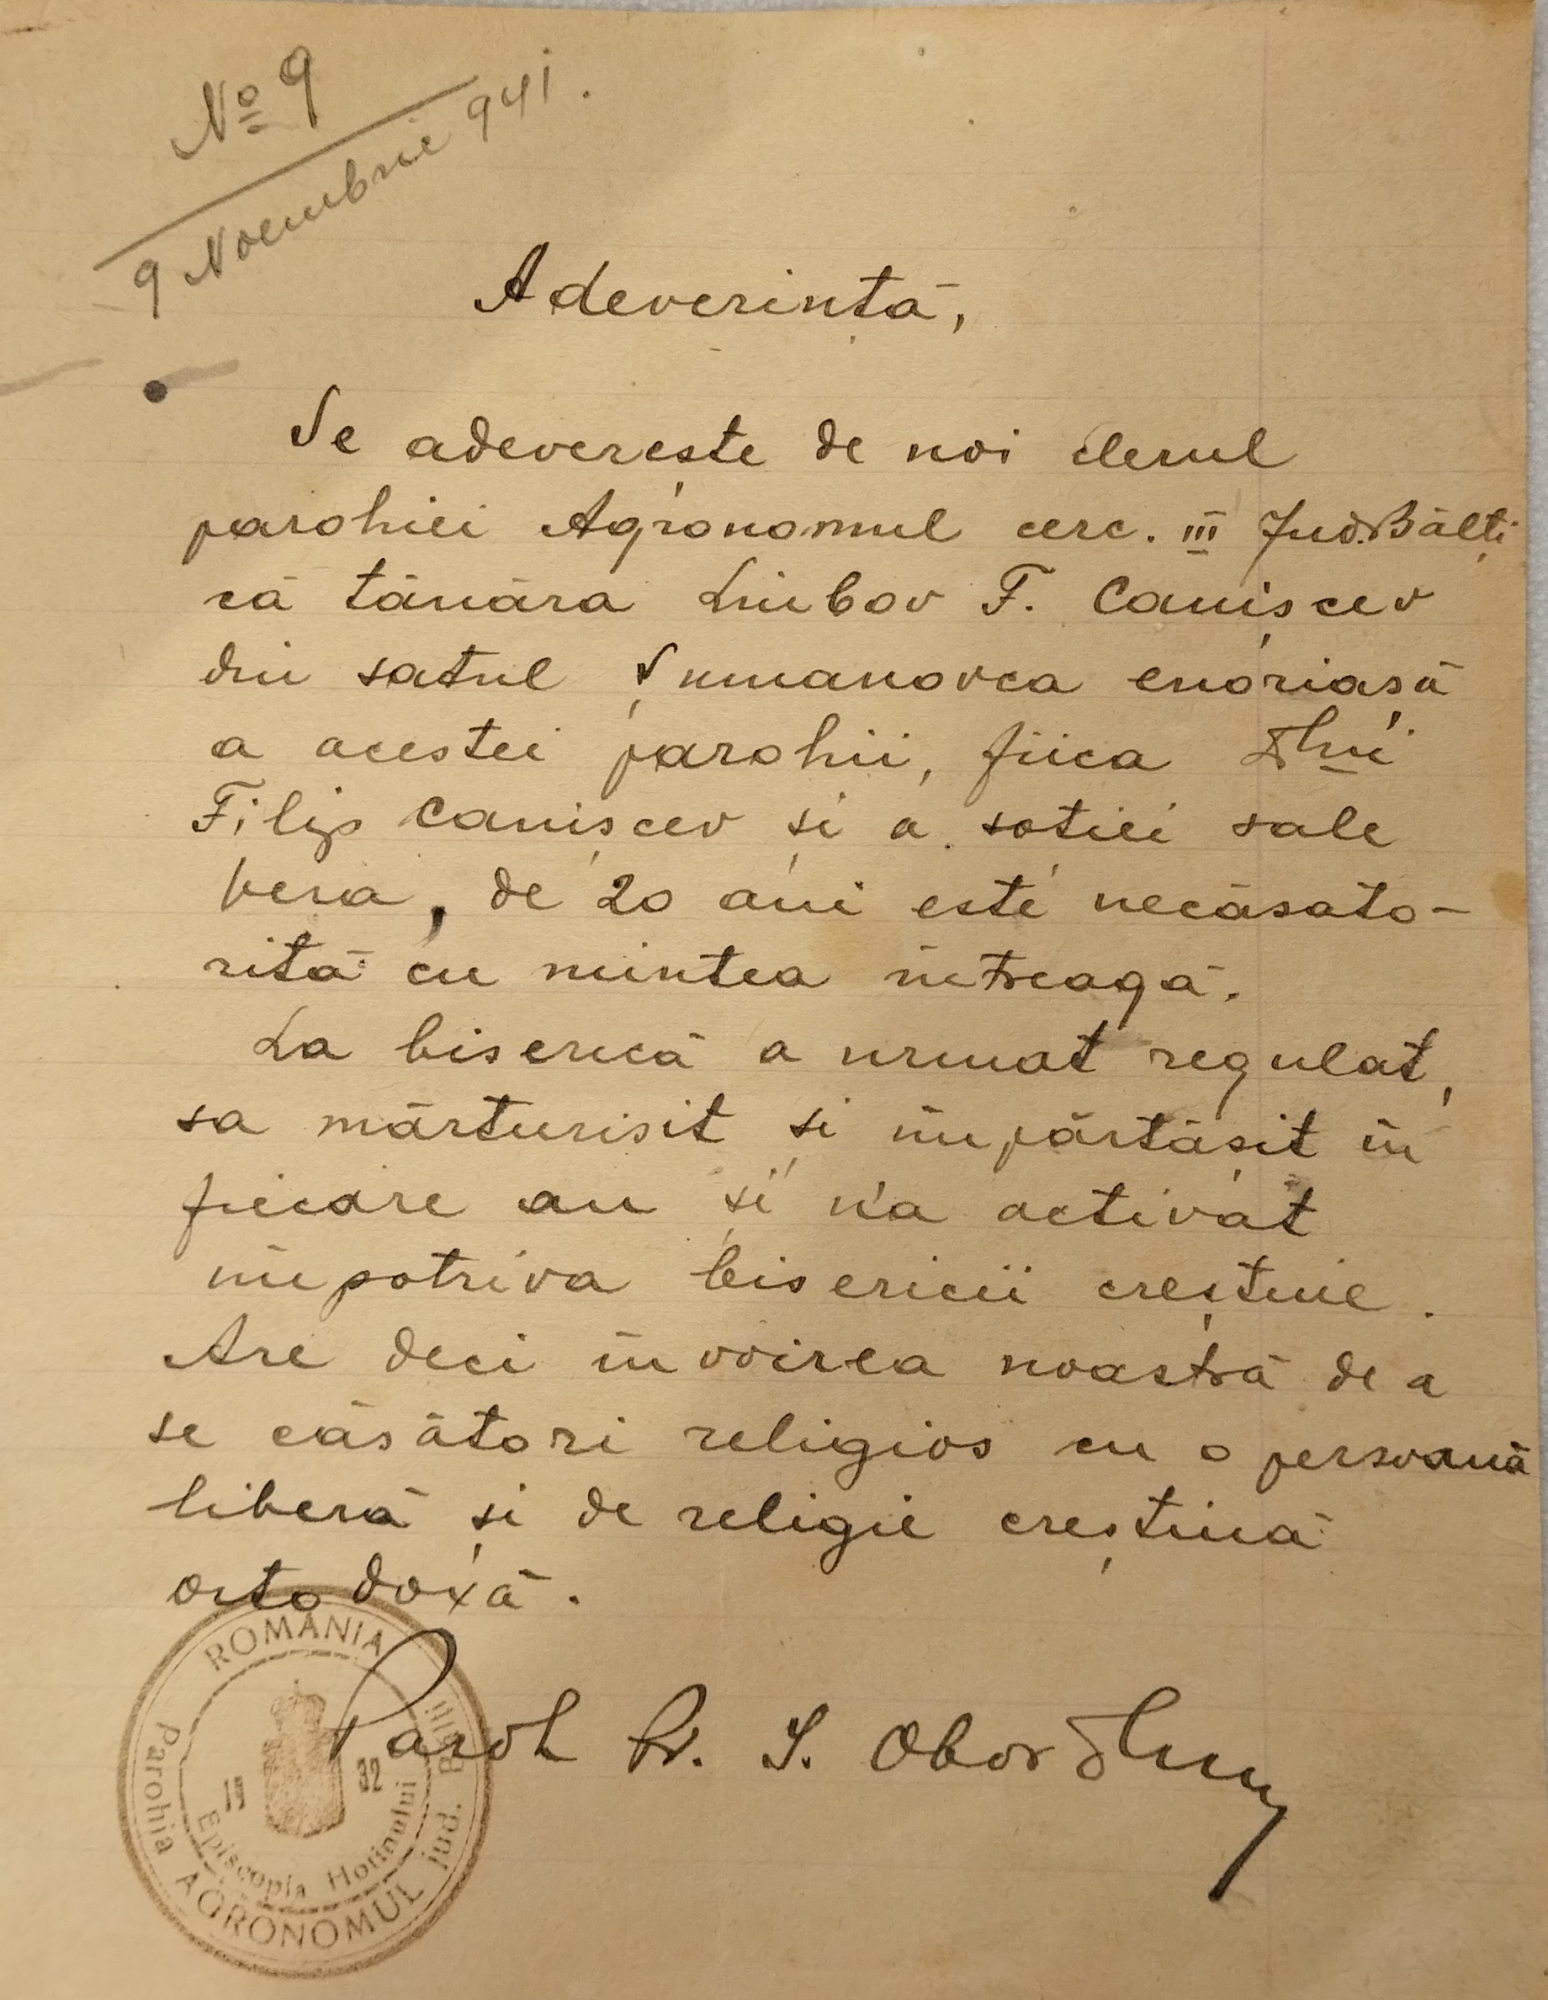 No 9
9 Noembrie 941.
Adeverință,
Se adeverește de noi clerul
parohiei Agronomul cerc. III Jud. Bălți
că tânăra Liubov F. Canișcev
din satul Șumanovca enoriașă
a acestei parohii, fiica Dlui
Filip Canișcev și a soției sale
Vera, de 20 ani este necăsato-
rită cu mintea întreagă.
La biserică a urmat regulat,
sa mărturisit și împărtășit în
fiecare an și n'a activat
împotriva bisericii creștine.
Are deci învoirea noastră de a
se căsători religios cu o persoană
liberă și de religie creștină
ortodoxă.
Paroh Pr. I.
ROMÂNIA
Parohia AGRONOMUL jud. Bălți
Episcopia Hotinului
19 32